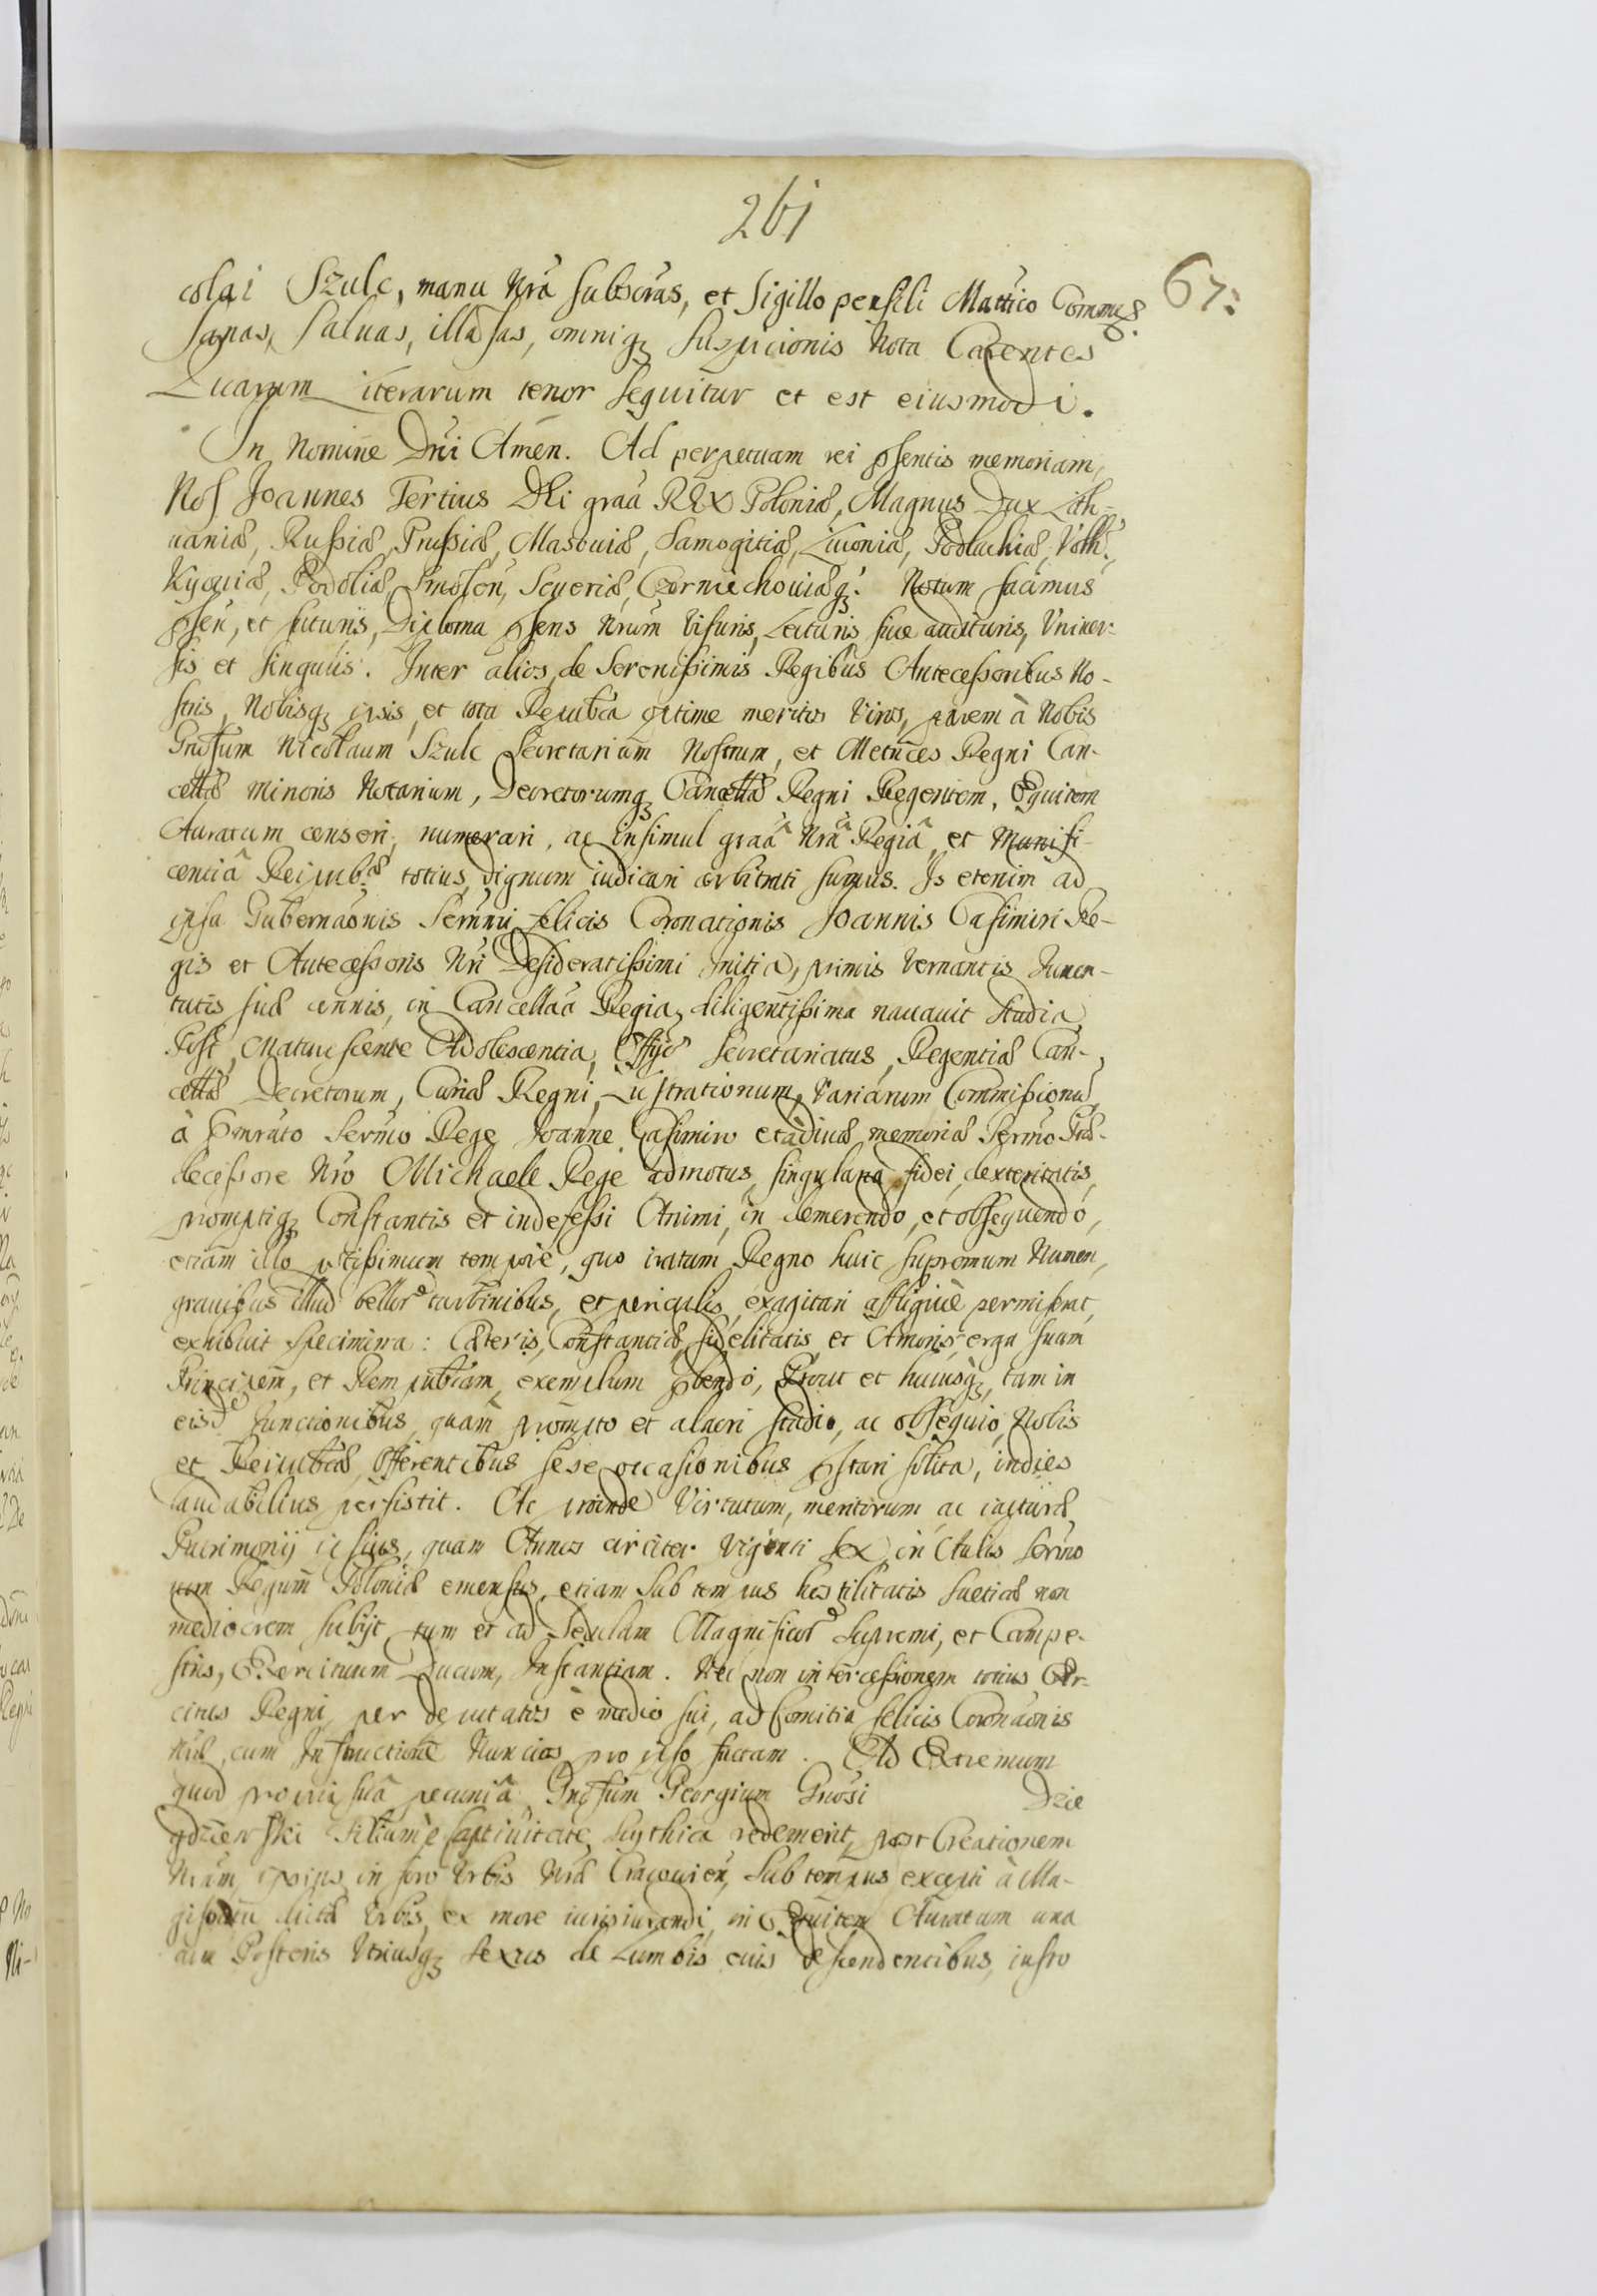 261
67:
colai Szulc, manu Nrã subscras, et Sigillo pensili Mattico Commu.
Sanas, Saluas, illæsas, omniq; Suspicionis Nota Carentes
Quarum Literarum tenor sequitur et est eiusmodi.
In Nomine Dñi Amen. Ad perpetuam rei pñsentis memoriam,
Nos Joannes Tertius Dei graã REX Poloniæ, Magnus Dux Lith-
uaniæ, Russiæ, Prussiæ, Masouiæ, Samogitiæ, Liuoniæ, Podlachiæ, Volh.
Kyouiæ, Podoliæ, Smolen, Seueriæ, Czerniechouiæq;. Notum facimus
pñsen, et futuris, Diploma pñsens Nrum visuris, Lecturis siue audituris, Vniuer-
sis et singulis. Inter alios, de Serenissimis Regibus Antecessoribus No-
stris, Nobisq; ipsis, et tota Republica optime meritos Viros, parem à Nobis
Gnosum Nicolaum Szulc Secretarium Nostrum, et Metrices Regni Can-
cellæ Minoris Notarium, Decretorumq; Cancellæ Regni Regentem, Equitem
Auratum censeri, numerari, ac insimul graâ Nrâ Regiâ, et Munifi-
centiâ Reipub.æ totius dignum iudicari arbitrati sumus. Is etenim ad
ipsa Gubernaonis Sermi felicis Coronationis Joannis Casimiri Re-
gis et Antecessoris Nri Desideratissimi initia, primis vernantis Iuuen-
tutis suæ annis, in Cancellaa Regia, diligentissima nauauit studia,
Post, Maturescente Adolescentia, Officijs Secretariatus, Regentiæ Can-
cellæ Decretorum, Curiæ Regni, Lustrationum, Variarum Commissionũ,
à pmrato Sermo Rege Joanne Casimiro et à diuæ memoriæ Sermo Præ-
decessore Nro Michaele Rege admotus, singularia fidei, dexteritatis,
promptiq; Constantis et indefessi Animi, in demerendo, et obsequendo,
etiam illo potissimum tempore, quo iratum Regno huic supremum Numen,
grauibus illud bellor turbinibus, et periculis, exagitari affligiue permiserat,
exhibuit specimina: Cæteris, Constantiæ, fidelitatis, et Amoris, erga suum
Principem, et Rempublicam, exemplum pbendo, Prout et huiusq;, tam in
eisd Functionibus, quam prompto et alacri studio, ac obsequio, Nobis
et Reipublicæ, offerentibus sese occasionibus pstari solita, indies
laudabilius persistit. Ac proinde Virtutum, meritorum, ac iacturæ
Patrimonij ipsius, quam Annos circiter viginti sex, in Aulis Sermo
rum Regum Poloniæ emensus, etiam sub tempus hostilitatis Sueticæ non
mediocrem subijt, tum et ad sedulam Magnificor Supremi, et Campe-
stris, Exercituum Ducum, Instantiam. Nec non intercessionem totius Exer-
citus Regni, per deputatos è medio sui, ad Comitia felicis Coronaonis
Nræ, cum Instructione Nuncios pro ipso factam. Ad Extremum
quod propriâ suâ pecuniâ Gnosum Georgium Gnosi Dzie
gdzierski Filium è Captiuitate Scythica redemerit, post Creationem
Nram, ipsius, in foro Vrbis Nræ Cracouien, sub tempus excepti à Ma-
gistratu dictæ Vrbis, ex more iurisiurandi, in Equitem Auratum una
cum Posteris Vtriusq; sexus de Lumbis eius descendentibus, iusto